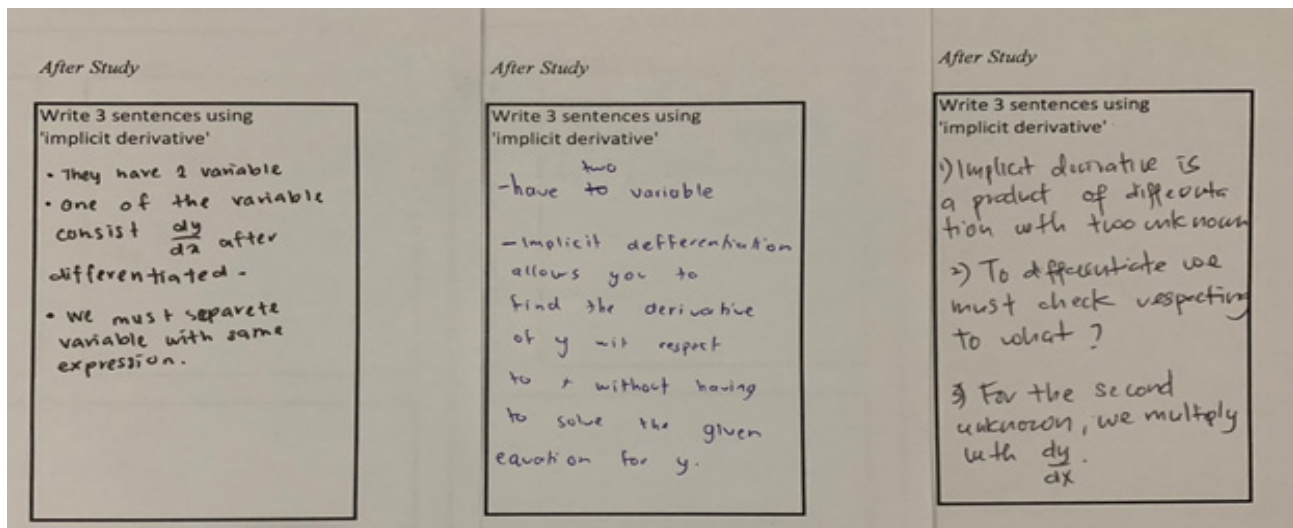 After Study
Write 3 sentences using
'implicit derivative'
• They have 2 variable
• one of the variable
consist dy/dx after
differentiated -
• we must separete
variable with same
expression.
After Study
Write 3 sentences using
'implicit derivative'
two
- have to variable
- Implicit defferentiation
allows you to
find the derivative
of y wit respect
to x without having
to solve the given
equation for y.
After Study
Write 3 sentences using
'implicit derivative'
1) Implicit derivative is
a product of differentia
tion with two unknown
2) To differentiate we
must check respecting
to what ?
3) For the second
unknown, we multiply
with dy/dx.